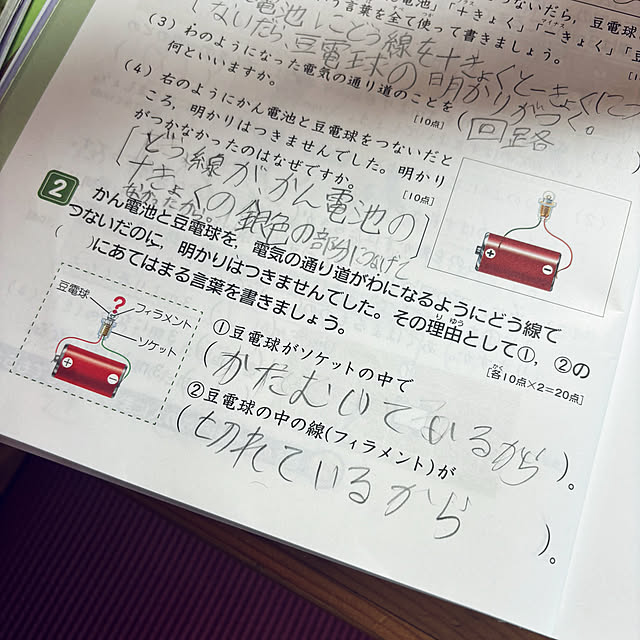 つないだら、豆電球
電池」「+きょく」「-きょく」「豆
う言葉を全て使って書きましょう。
電池にどう線を+きょくと-きょくにつ
ないだら、豆電球の明かりがつく。
(3) わのようになった電気の通り道のことを
何といいますか。
[10点]
(回路)
(4) 右のようにかん電池と豆電球をつないだと
ころ、明かりはつきませんでした。明かり
がつかなかったのはなぜですか。
[10点]
[どう線がかん電池の
+きょくの銀色の部分につなげて
なかったから。]
2 かん電池と豆電球を、電気の通り道がわになるようにどう線で
つないだのに、明かりはつきませんでした。その理由として①、②の
りゆう
( )にあてはまる言葉を書きましょう。
かく
[各10点×2=20点]
豆電球
?
フィラメント
ソケット
+
-
+
-
①豆電球がソケットの中で
(かたむいているから)。
②豆電球の中の線(フィラメント)が
(切れているから)。